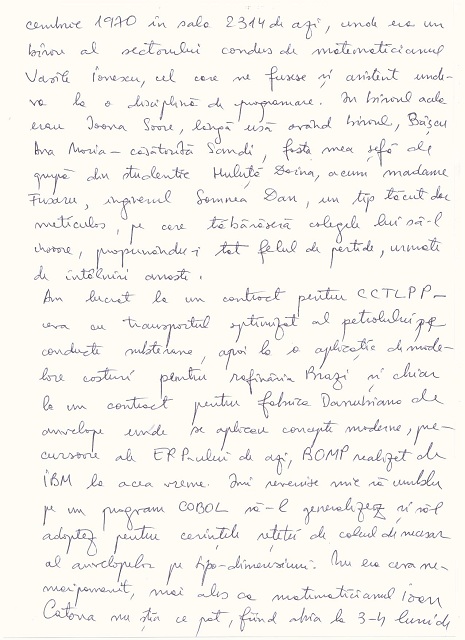 cembrie 1970 în sala 2314 de azi, unde era un
birou al sectorului condus de matematicianul
Vasile Ionescu, cel care ne fusese și asistent unde-
va la o disciplină de programare. În biroul acela
erau Ioana Soore, lângă ușă având biroul, Bâșcu
Ana Maria – căsătorită Sandi, fosta mea șefă de
grupă din studenție Huluță Doina, acum madame
Fusaru, inginerul Somnea Dan, un tip tăcut dar
meticulos, pe care tăbărâseră colegele lui să-l
însoare, propunându-i tot felul de partide, urmate
de întâlniri anoste.
Am lucrat la un contract pentru CCTLPP –
era cu transportul optimizat al petrolului pe
conducte subterane, apoi la o aplicație de mode-
lare costuri pentru rafinăria Brazi și chiar
la un contract pentru fabrica Danubiana de
anvelope unde se aplicau concepte moderne, pre-
cursoare ale ERP-ului de azi, BOMP realizat de
IBM la acea vreme. Îmi revenise mie să umblu
pe un program COBOL să-l generalizez și să-l
adoptez pentru cerințele rețetei de calcul de necesar
al anvelopelor pe tipo-dimensiuni. Nu era ceva ne-
maipomenit, mai ales că matematicianul Ioan
Catona nu știa ce pot, fiind abia la 3-4 luni de